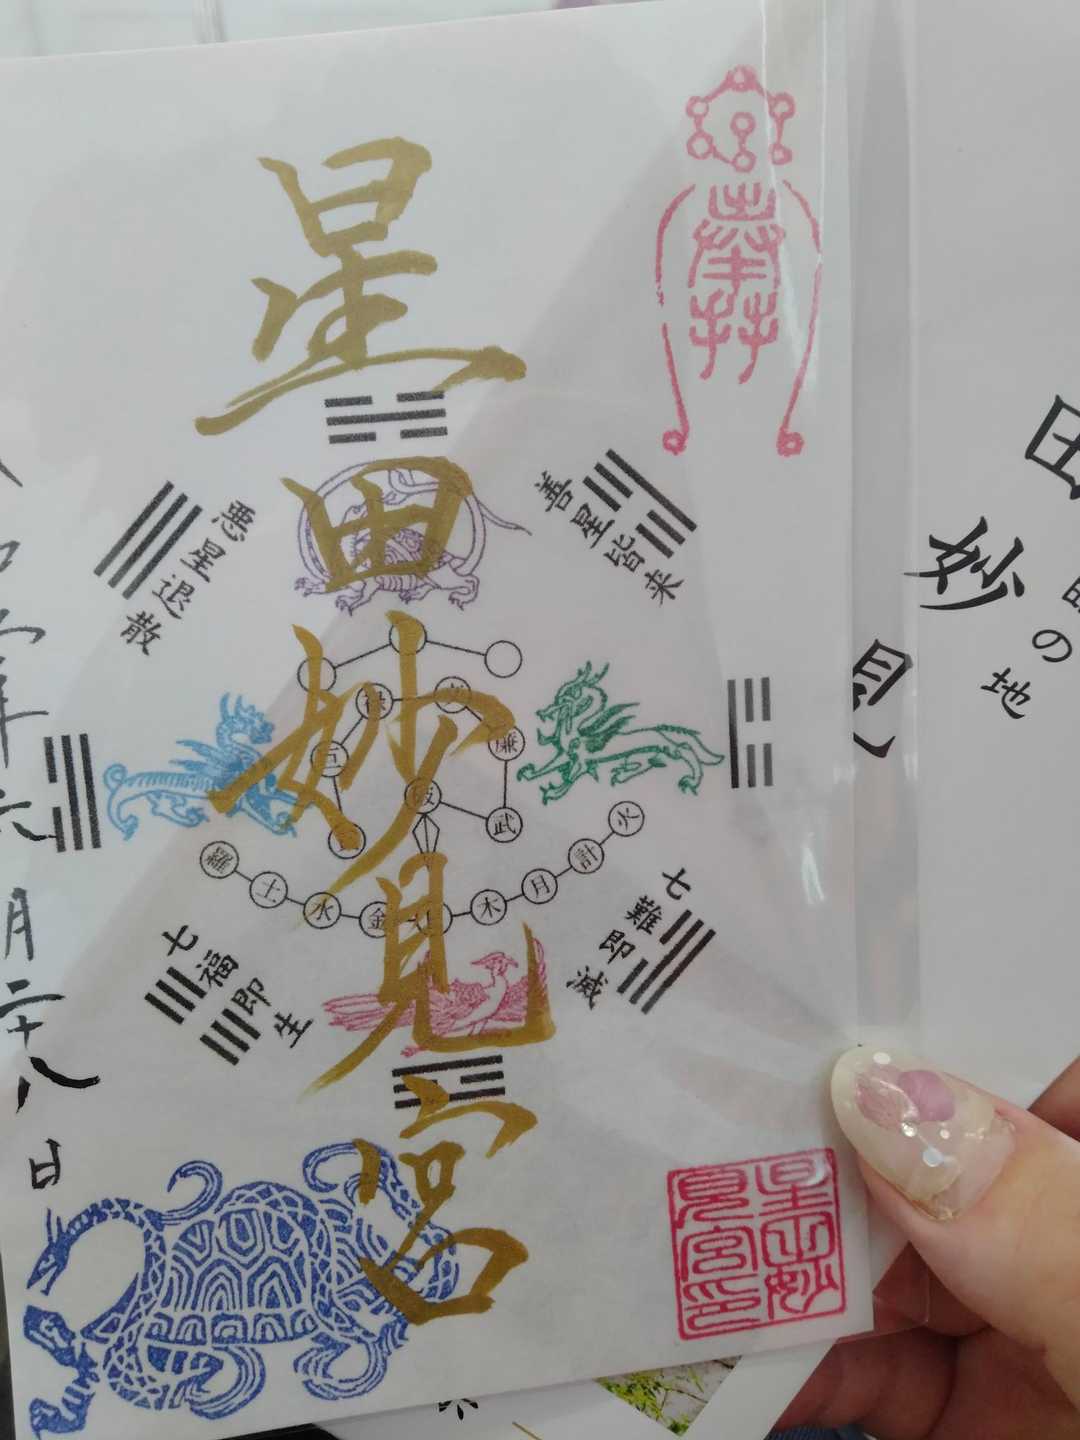 星田妙見宮
善星皆来
悪星退散
七難即滅
七福即生
禄
廉
巨
武
羅
土
水
金
木
月
計
火
六月二十八日
星田妙
見宮印
田妙見
の地